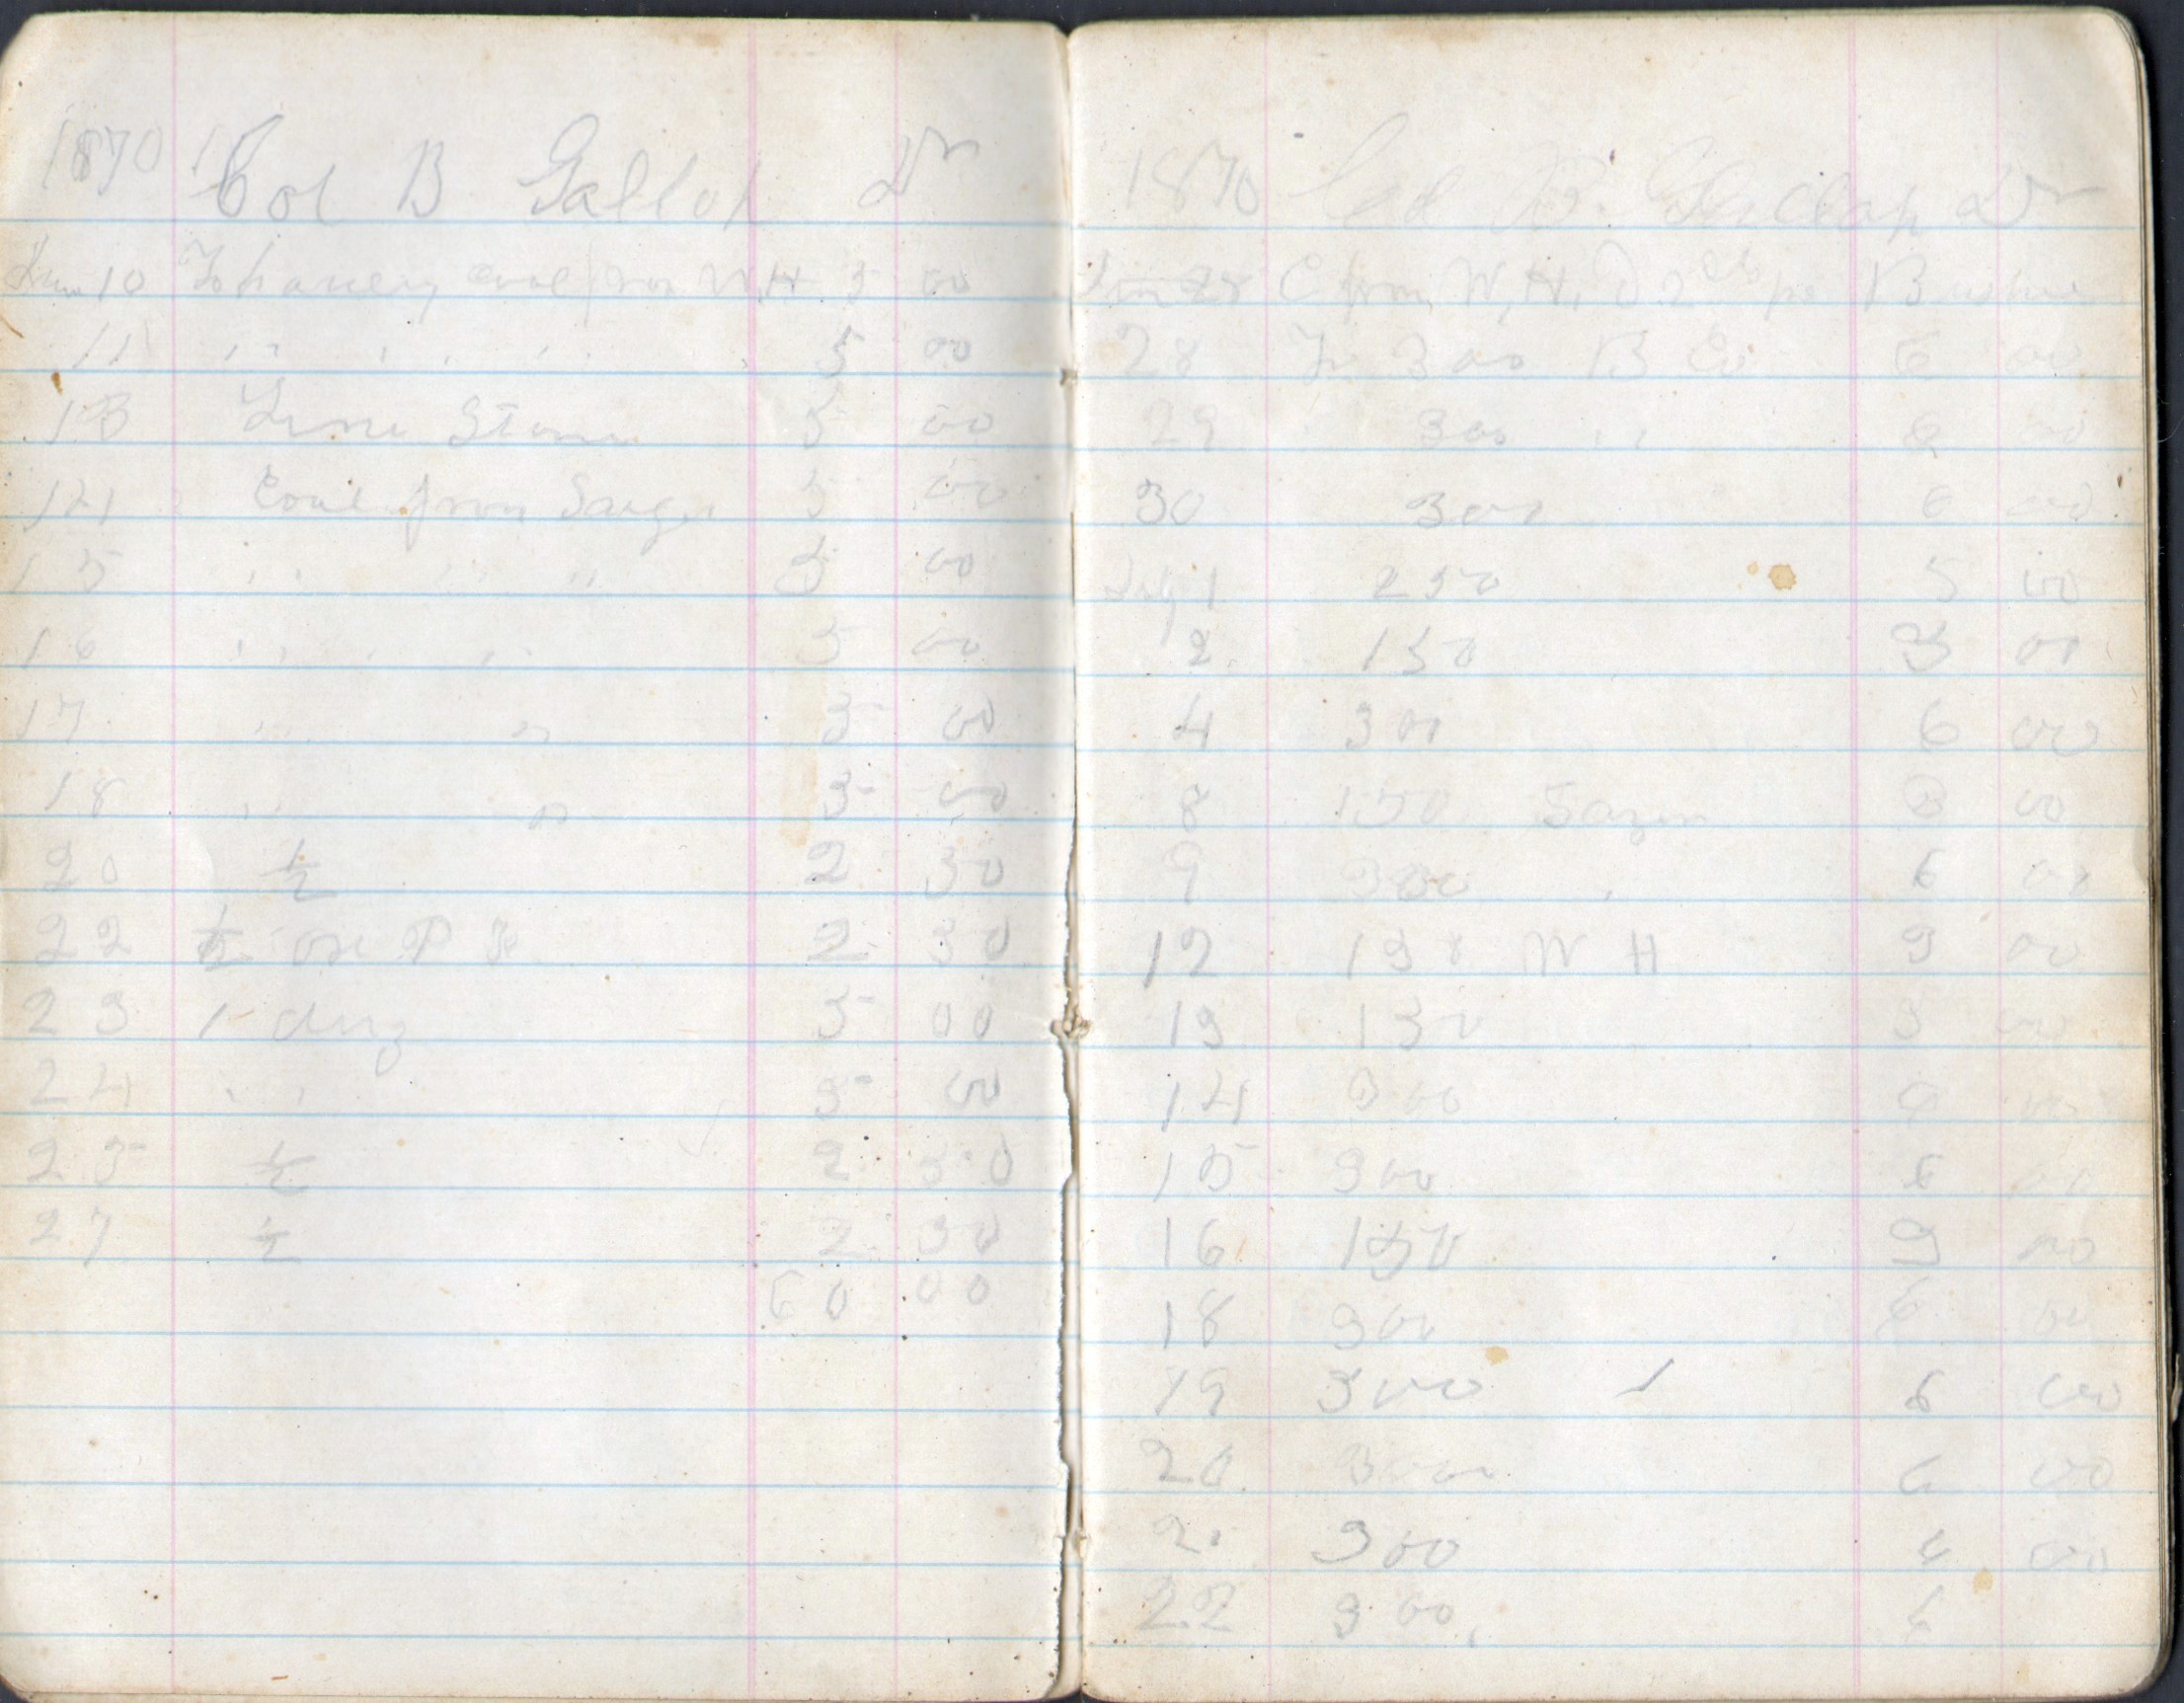 1870 Col B Gallop Dr
June 10 To hauling coal from W.H 5 00
11 " " " " 5 00
13 Lime Stone 5 00
14 Coal from Sarges 5 00
15 " " " 5 00
16 " " " 5 00
17 " " 5 00
18 " " 5 00
20 1/2 2 50
22 1/2 on P 2 50
23 1 day 5 00
24 " " 5 00
25 1/2 2 50
27 1/2 2 50
60 00
1870 Col B. Gallop Dr
June 28 C from W, H, D 2 cts pr B
28 To 300 B Co 6 00
29 300 " 6 00
30 300 6 00
July 1 250 5 00
2 150 3 00
4 300 6 00
8 150 3 00
9 300 " 6 00
12 150 W H 3 00
13 150 3 00
14 300 6 00
15 300 6 00
16 150 3 00
18 300 6 00
19 300 6 00
20 300 6 00
21 300 6 00
22 300 6